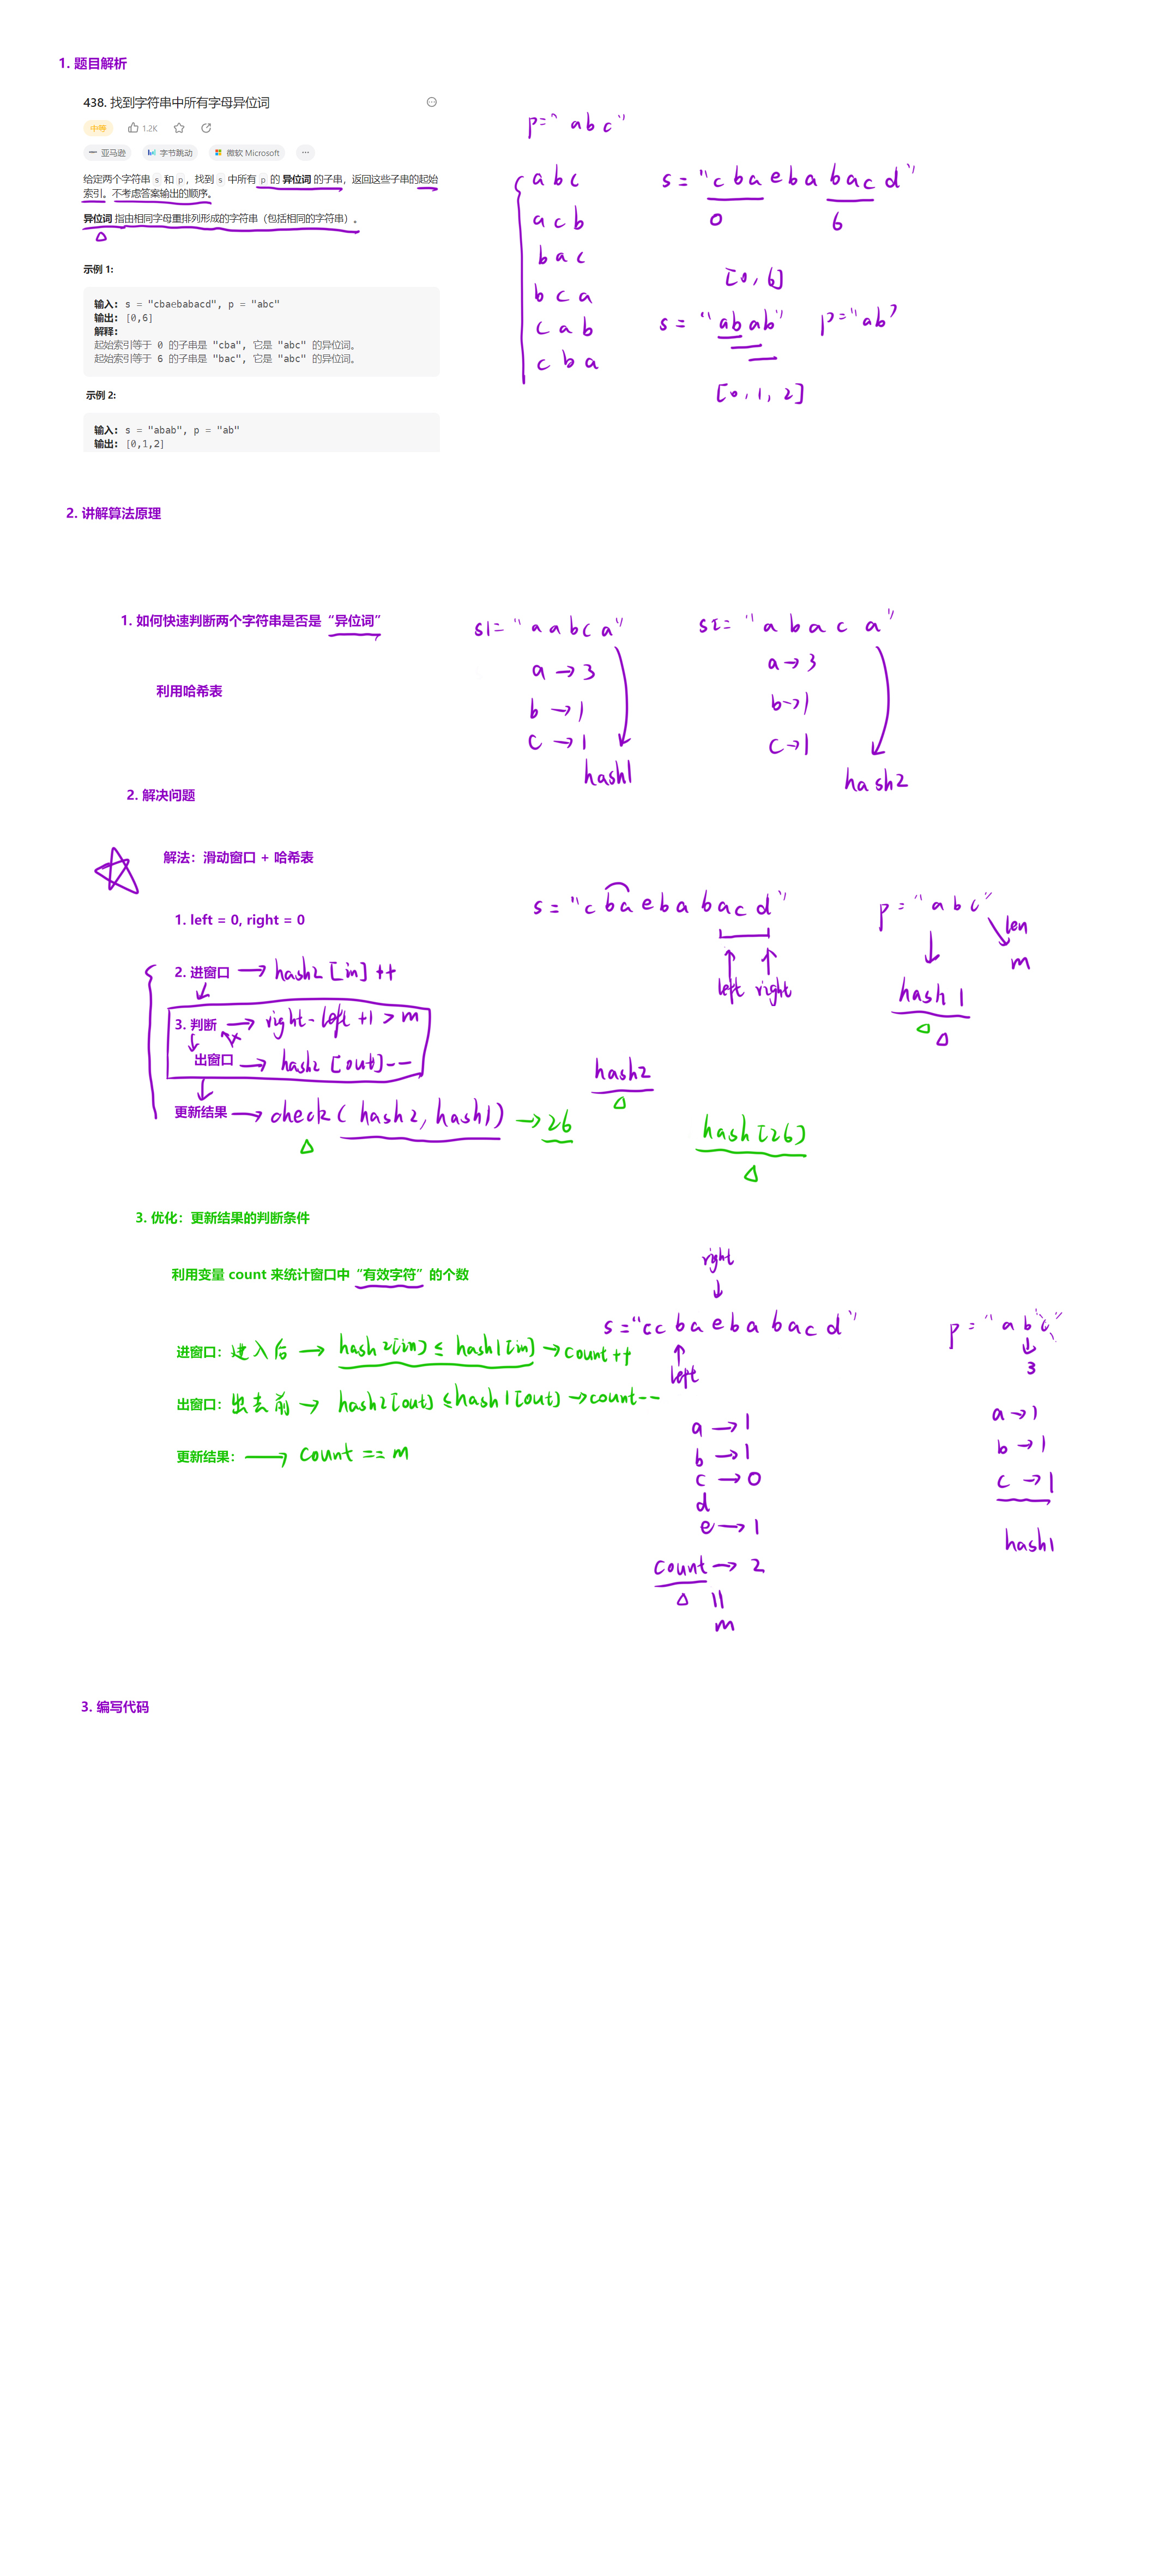 1. 题目解析
438. 找到字符串中所有字母异位词
中等 1.2K
亚马逊 字节跳动 微软 Microsoft ...
给定两个字符串 s 和 p，找到 s 中所有 p 的 异位词 的子串，返回这些子串的起始
索引。不考虑答案输出的顺序。
异位词 指由相同字母重排列形成的字符串（包括相同的字符串）。
示例 1:
输入: s = "cbaebabacd", p = "abc"
输出: [0,6]
解释:
起始索引等于 0 的子串是 "cba", 它是 "abc" 的异位词。
起始索引等于 6 的子串是 "bac", 它是 "abc" 的异位词。
示例 2:
输入: s = "abab", p = "ab"
输出: [0,1,2]
p = "abc"
abc
acb
bac
bca
cab
cba
s = "cbaebabacd"
0 6
[0,6]
s = "abab" p = "ab"
[0,1,2]
2. 讲解算法原理
1. 如何快速判断两个字符串是否是 "异位词"
利用哈希表
s1 = "aabca"
a → 3
b → 1
c → 1
hash1
s2 = "abaca"
a → 3
b → 1
c → 1
hash2
2. 解决问题
解法：滑动窗口 + 哈希表
1. left = 0, right = 0
2. 进窗口 → hash2[in]++
3. 判断 → right - left + 1 > m
出窗口 → hash2[out]--
更新结果 → check(hash2, hash1) → 26
s = "cbaebabacd"
left right
p = "abc"
len
m
hash1
hash2
hash[26]
3. 优化：更新结果的判断条件
利用变量 count 来统计窗口中 "有效字符" 的个数
进窗口：进入后 → hash2[in] ≤ hash1[in] → count++
出窗口：出去前 → hash2[out] ≤ hash1[out] → count--
更新结果： → count == m
right
s = "ccbaebabacd"
left
a → 1
b → 1
c → 0
d
e → 1
count → 2
m
p = "abc"
3
a → 1
b → 1
c → 1
hash1
3. 编写代码